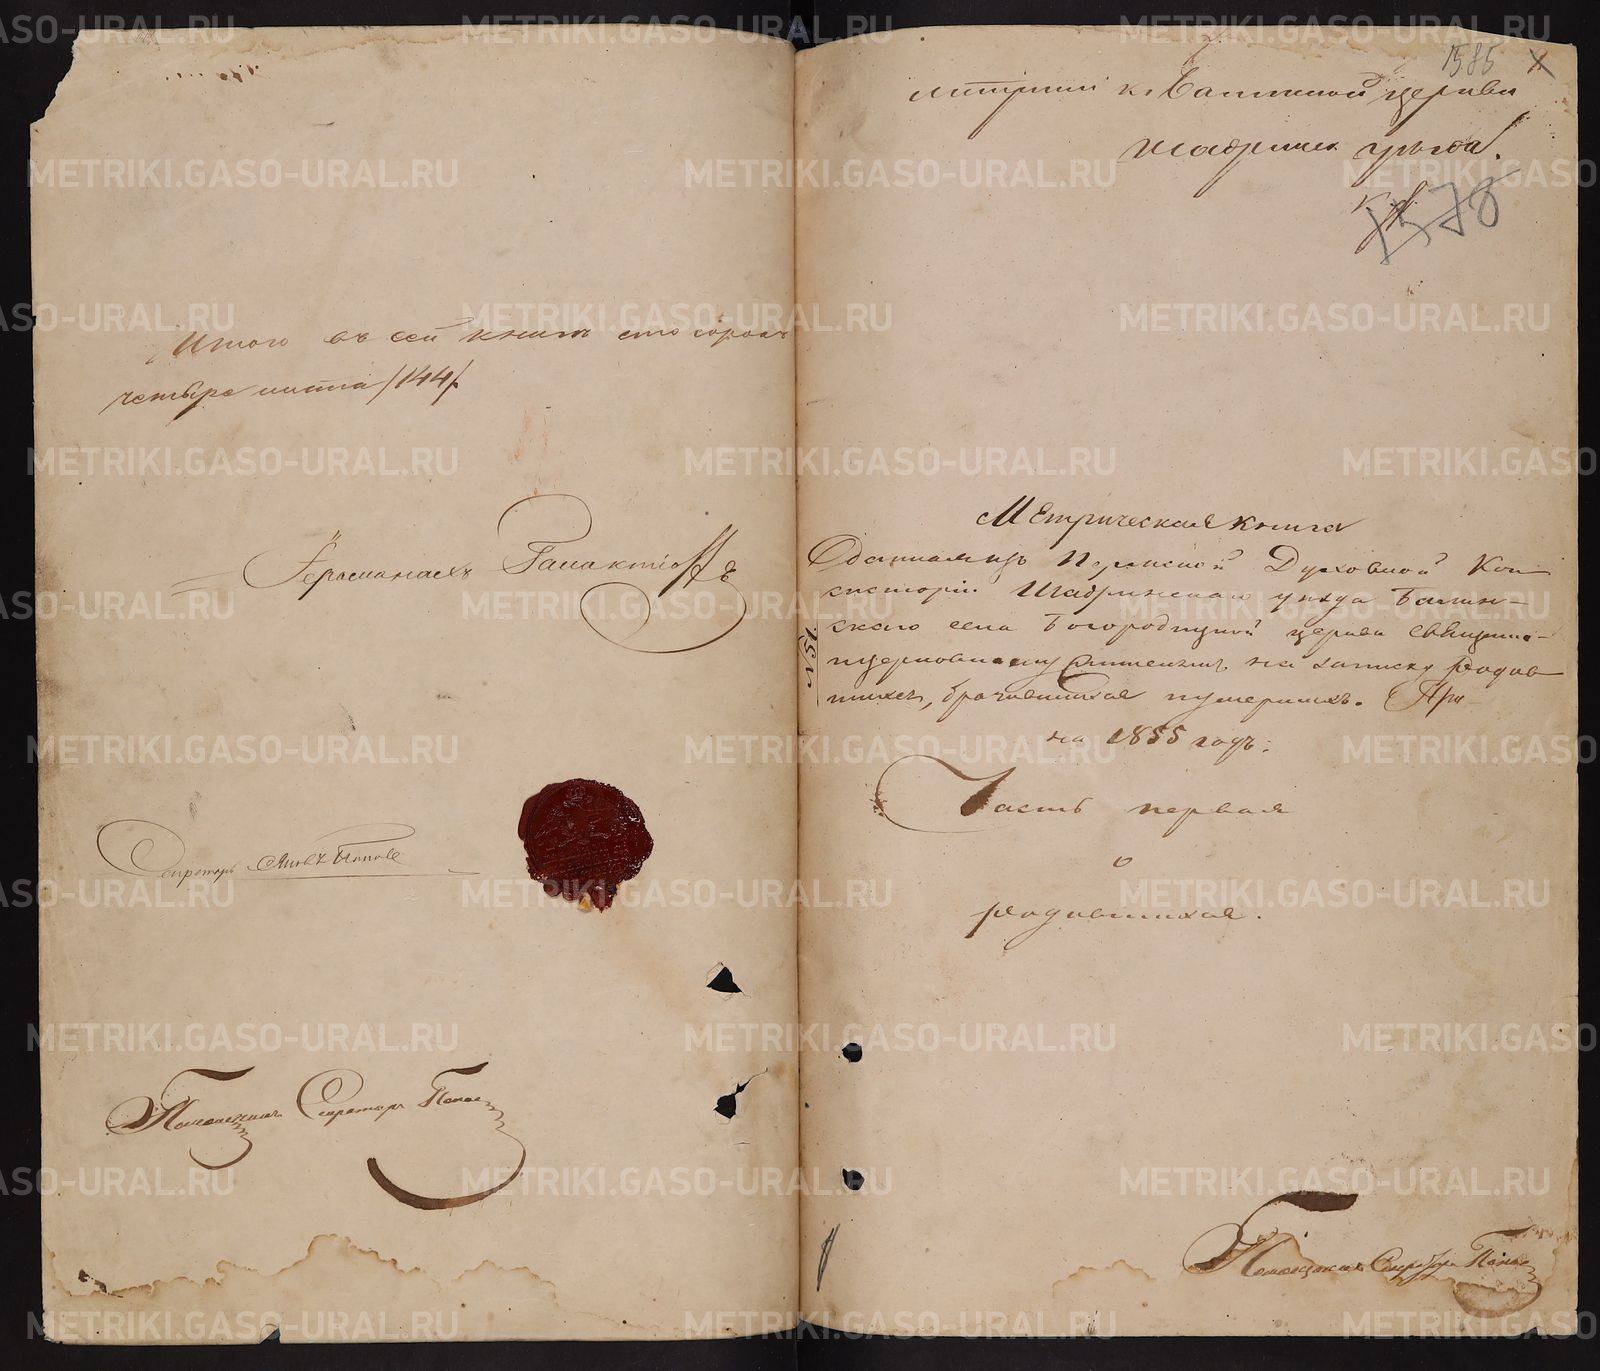 Итого въ сей книгѣ сто сорокъ
четыре листа /144/.
Секретарь Попов
Помощникъ Секретаря Попов
1585
метрики к. церкви
Шадринск уѣзда.
1578
Метрическая книга
Данная изъ Пермской Духовной Кон-
систоріи Шадринскаго уѣзда
скаго села Богородицкой церкви священно-
церковнослужителямъ на записку родив
шихся, брачившихся и умершихъ.
на 1855 годъ.
Часть первая
о
родившихся.
Помощникъ Секретаря Попов
METRIKI.GASO-URAL.RU